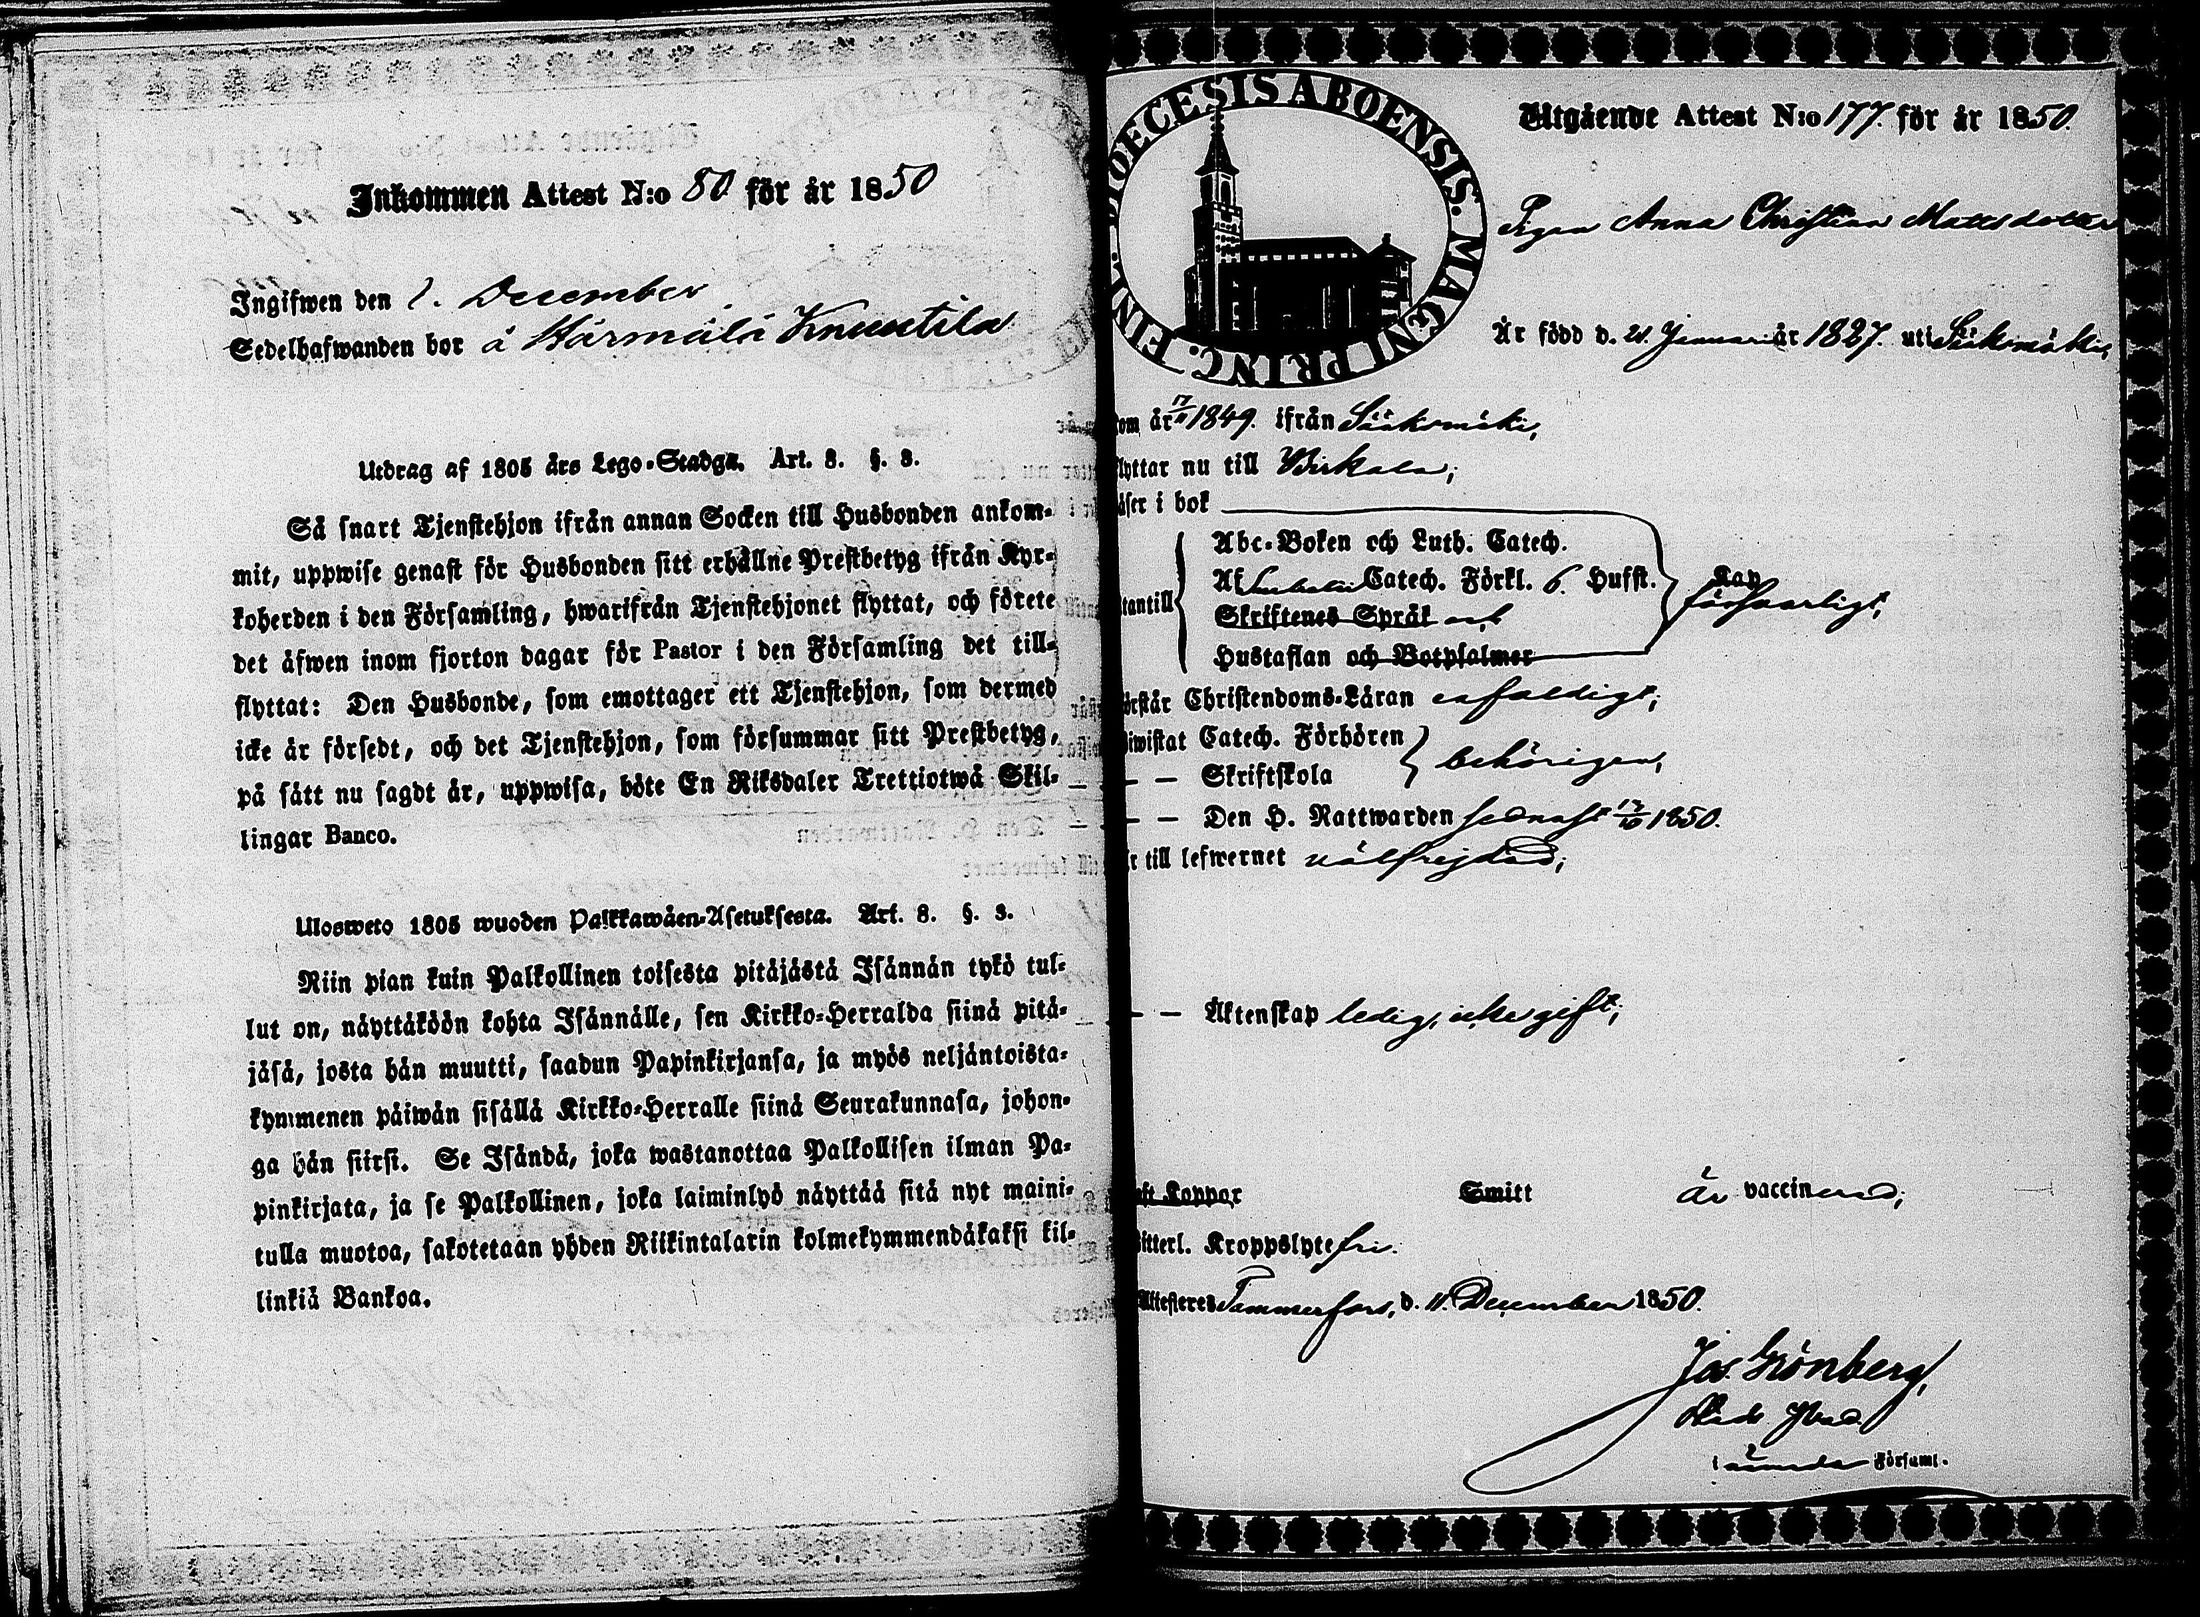 Inkommen Attest N:o 80 för år 1850
Ingifwen den December
Sedelhafwanden bor å Härmälä Knuutila
Utdrag af 1805 års Lego-Stadga. Art. 8. §. 3.
Så snart Tjenstehjon ifrån annan Socken till Husbonden ankom-
mit, uppwise genast för Husbonden sitt erhållne Prestbetyg ifrån Kyr-
koherden i den Församling, hwarifrån Tjenstehjonet flyttat, och förete
det äfwen inom fjorton dagar för Pastor i den Församling det till-
flyttat: Den Husbonde, som emottager ett Tjenstehjon, som dermed
icke är försedt, och det Tjenstehjon, som försummar sitt Prestbetyg,
på sätt nu sagdt är, uppwisa, böte En Riksdaler Trettiotwå Skil-
lingar Banco.
Ulosweto 1805 wuoden Palkkawäen-Asetuksesta. Art. 8. §. 3.
Niin pian kuin Palkollinen toisesta pitäjästä Isännän tykö tul-
lut on, näyttäköön kohta Isännälle, sen Kirkko-Herralda siinä pitä-
jäsä, josta hän muutti, saadun Papinkirjansa, ja myös neljäntoista-
kymmenen päiwän sisällä Kirkko-Herralle siinä Seurakunnasa, johon-
ga hän siirsi. Se Isändä, joka wastanottaa Palkollisen ilman Pa-
pinkirjata, ja se Palkollinen, joka laiminlyö näyttää sitä nyt maini-
tulla muotoa, sakotetaan yhden Riikintalarin kolmekymmendäkaksi kil-
linkiä Bankoa.
DIOECESIS ABOENSIS. MAGNI PRINC. FINL.
Utgående Attest N:o 177. för år 1850.
Pigan Anna Christina Mattsdotter
Är född d. 21 Januari år 1827. uti Sääksmäki,
om år 17/11 1849. ifrån Sääksmäki,
lyttar nu till Birkala;
äser i bok
Abc-Boken och Luth. Catech.
Af Catech. Förkl. 6. Hufst.
tantill
Skriftenes Språk och
Hustaflan och Botpsalmer
försvarligt,
örstår Christendoms-Läran enfaldigt;
iwistat Catech. Förhören
— — Skriftskola
behörigen,
— — Den H. Nattwarden sednast 1850.
r till lefwernet välfrejdad;
— — Äktenskap ledig, icke gift;
ft Koppor Smitt är vaccinerad;
itterl. Kroppslyte fri.
Attesteres Tammerfors, d. 11. December 1850.
Jos. Grönberg,
i Församl.